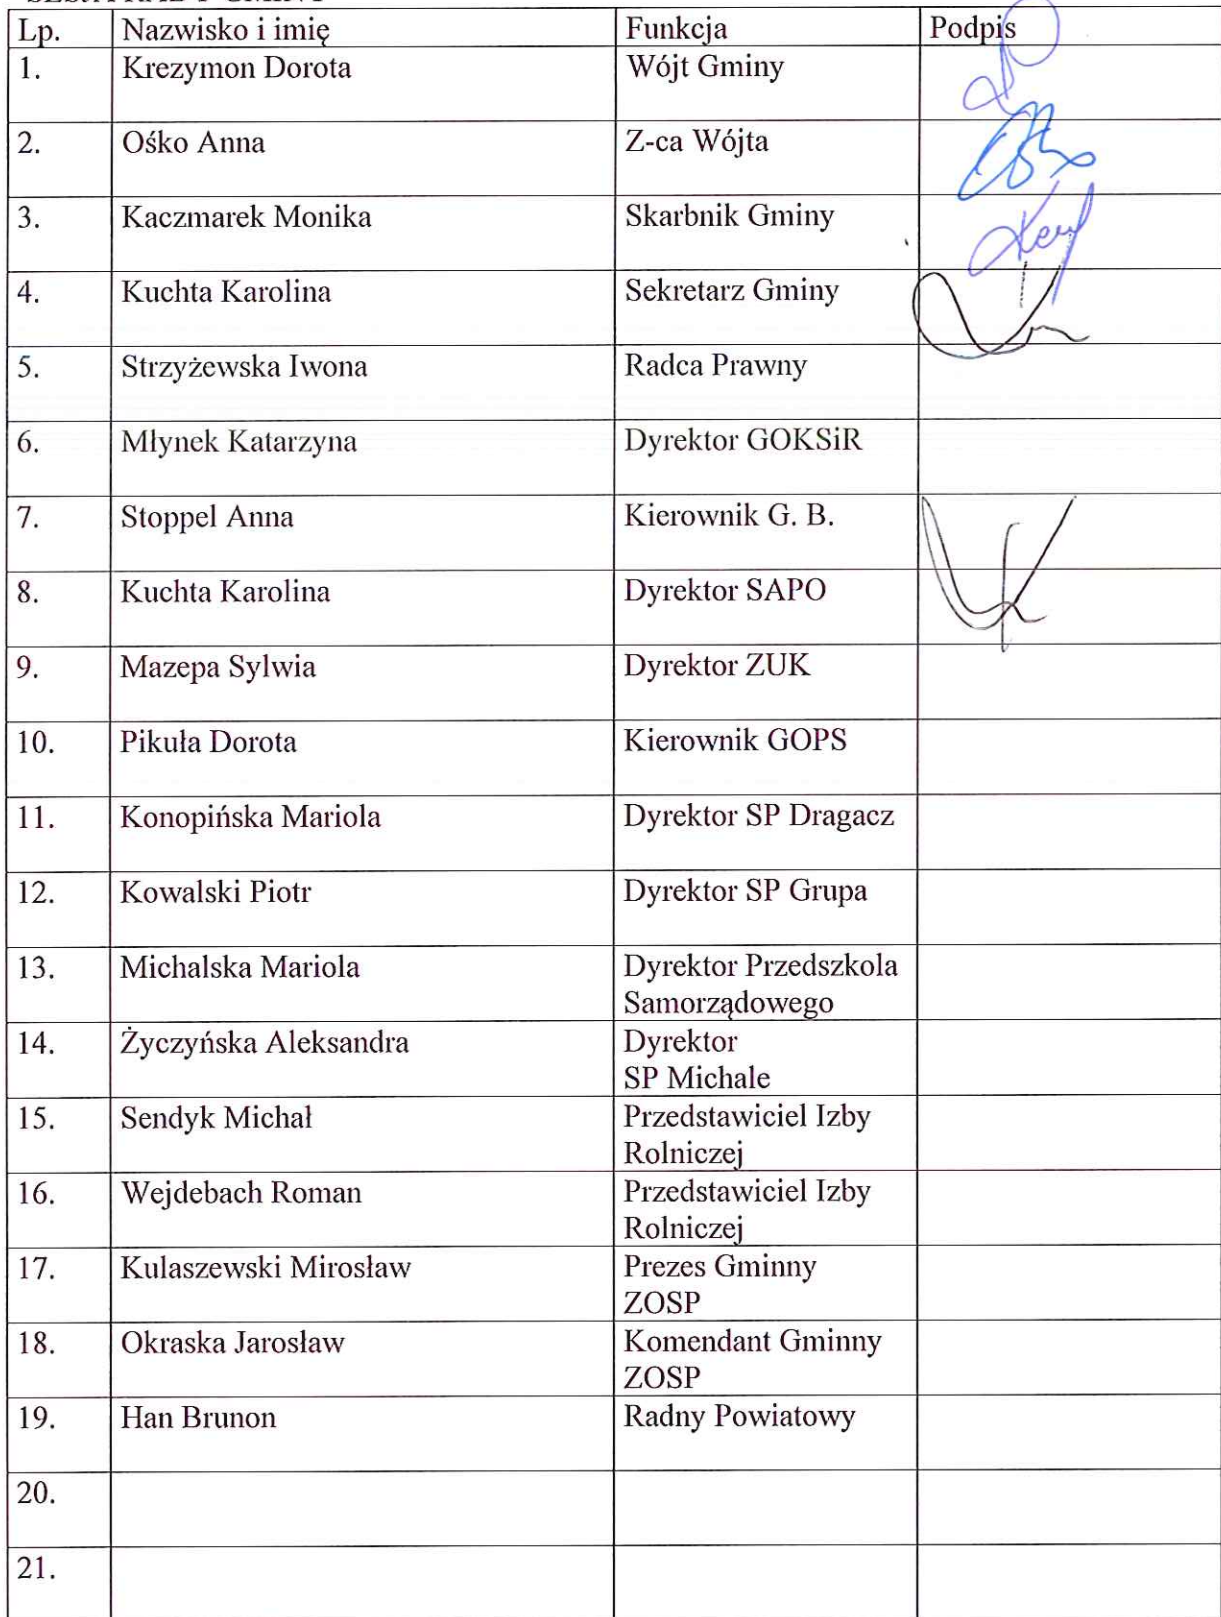 Lp. Nazwisko i imię Funkcja Podpis
1. Krezymon Dorota Wójt Gminy
2. Ośko Anna Z-ca Wójta
3. Kaczmarek Monika Skarbnik Gminy
4. Kuchta Karolina Sekretarz Gminy
5. Strzyżewska Iwona Radca Prawny
6. Młynek Katarzyna Dyrektor GOKSiR
7. Stoppel Anna Kierownik G. B.
8. Kuchta Karolina Dyrektor SAPO
9. Mazepa Sylwia Dyrektor ZUK
10. Pikuła Dorota Kierownik GOPS
11. Konopińska Mariola Dyrektor SP Dragacz
12. Kowalski Piotr Dyrektor SP Grupa
13. Michalska Mariola Dyrektor Przedszkola
Samorządowego
14. Życzyńska Aleksandra Dyrektor
SP Michale
15. Sendyk Michał Przedstawiciel Izby
Rolniczej
16. Wejdebach Roman Przedstawiciel Izby
Rolniczej
17. Kulaszewski Mirosław Prezes Gminny
ZOSP
18. Okraska Jarosław Komendant Gminny
ZOSP
19. Han Brunon Radny Powiatowy
20.
21.